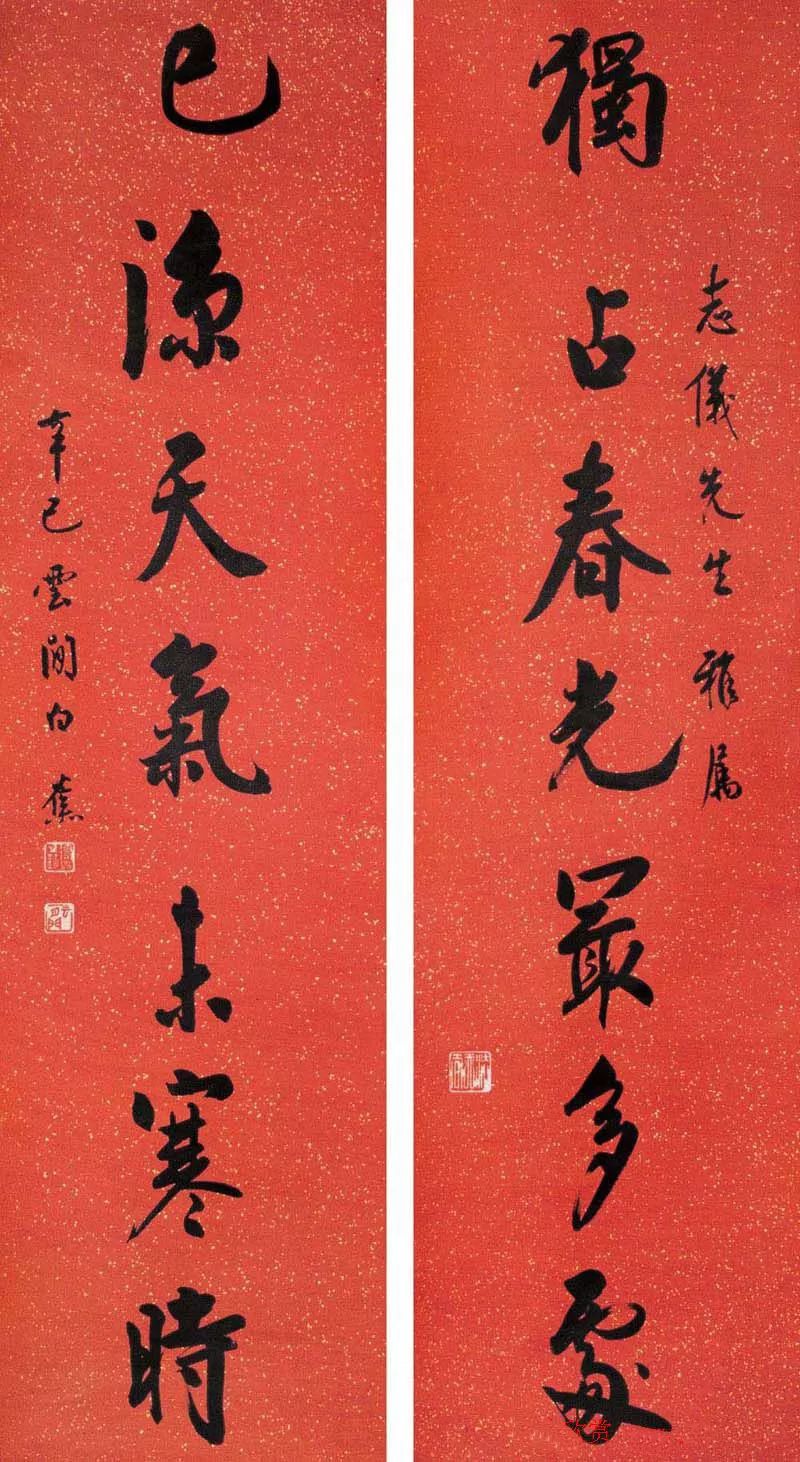 志儀先生雅屬
獨占春光最多處
已涼天氣未寒時
辛巳雲間白蕉